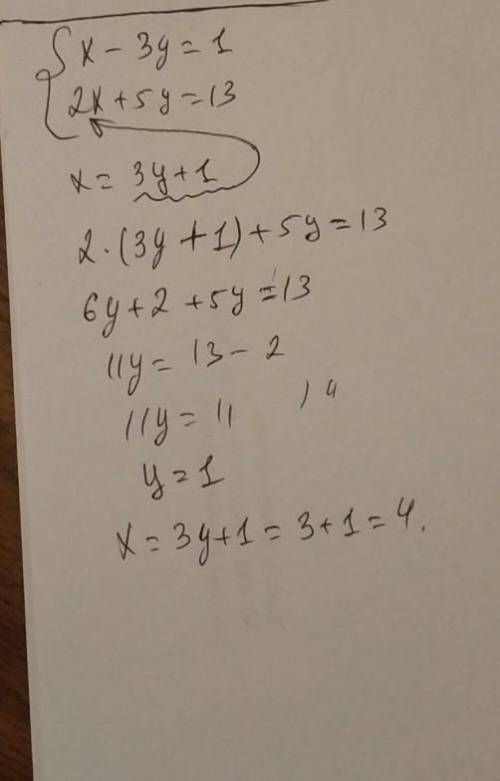 { x - 3y = 1
2x + 5y = 13
x = 3y + 1
2 · (3y + 1) + 5y = 13
6y + 2 + 5y = 13
11y = 13 - 2
11y = 11
y = 1
x = 3y + 1 = 3 + 1 = 4.